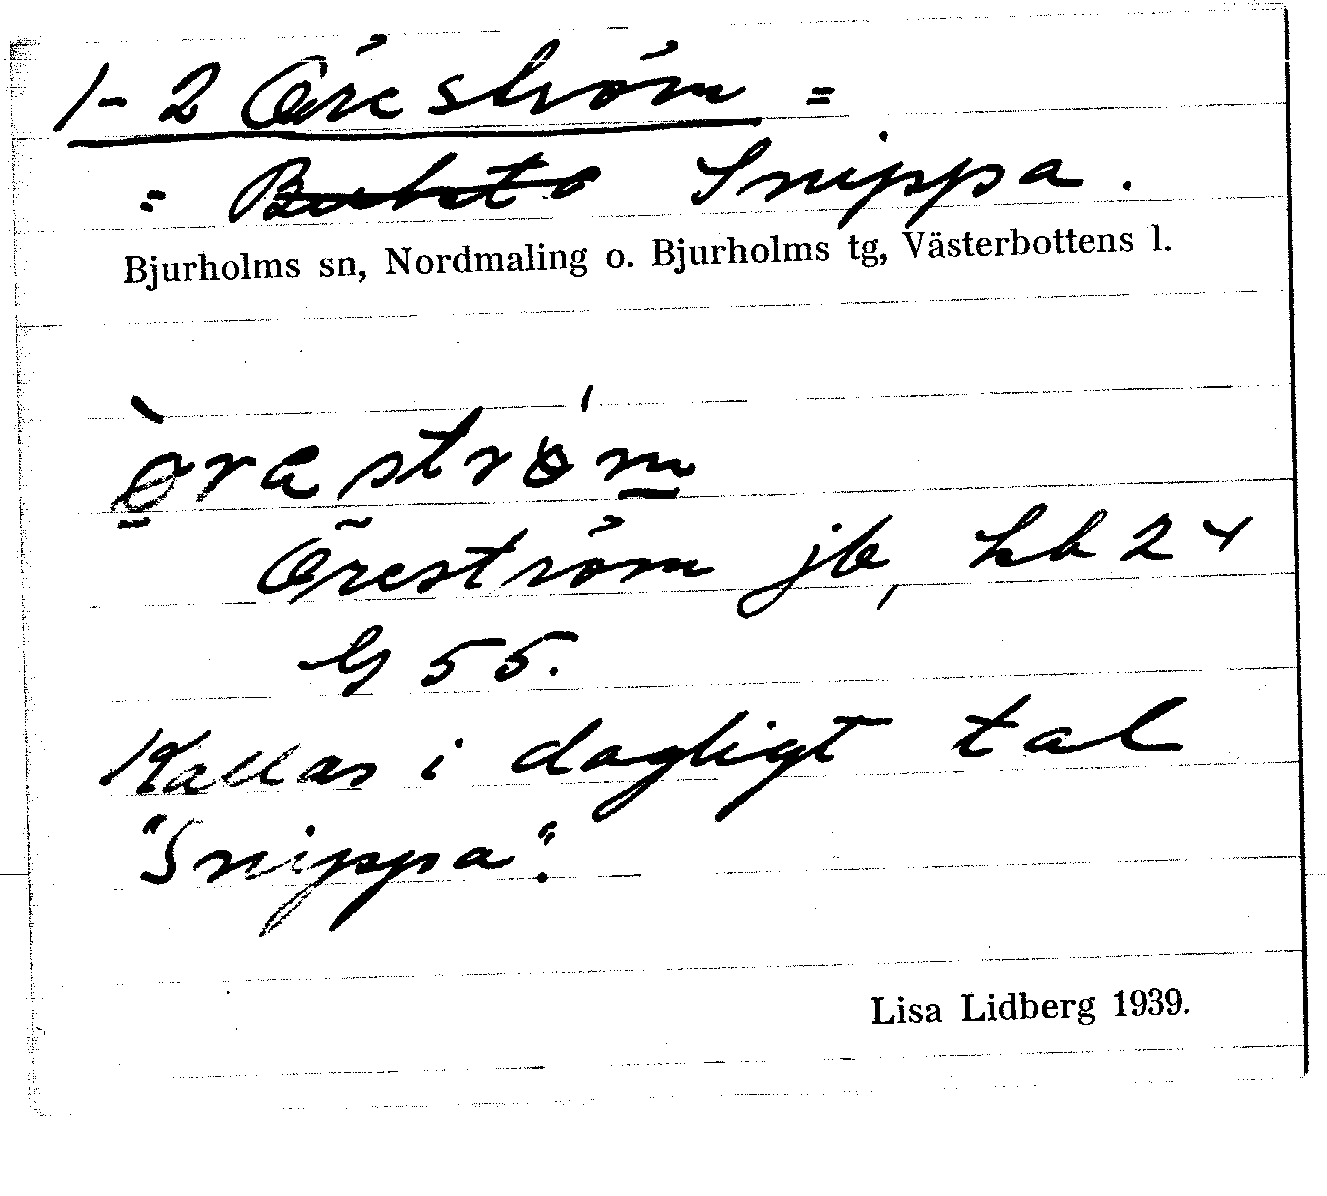 1-2 Öreström =
= Snippa.
Bjurholms sn, Nordmaling o. Bjurholms tg, Västerbottens l.
ø̀raströ́m
Öreström jb, hb 24
G 55.
Kallas i dagligt tal
"Snippa".
Lisa Lidberg 1939.